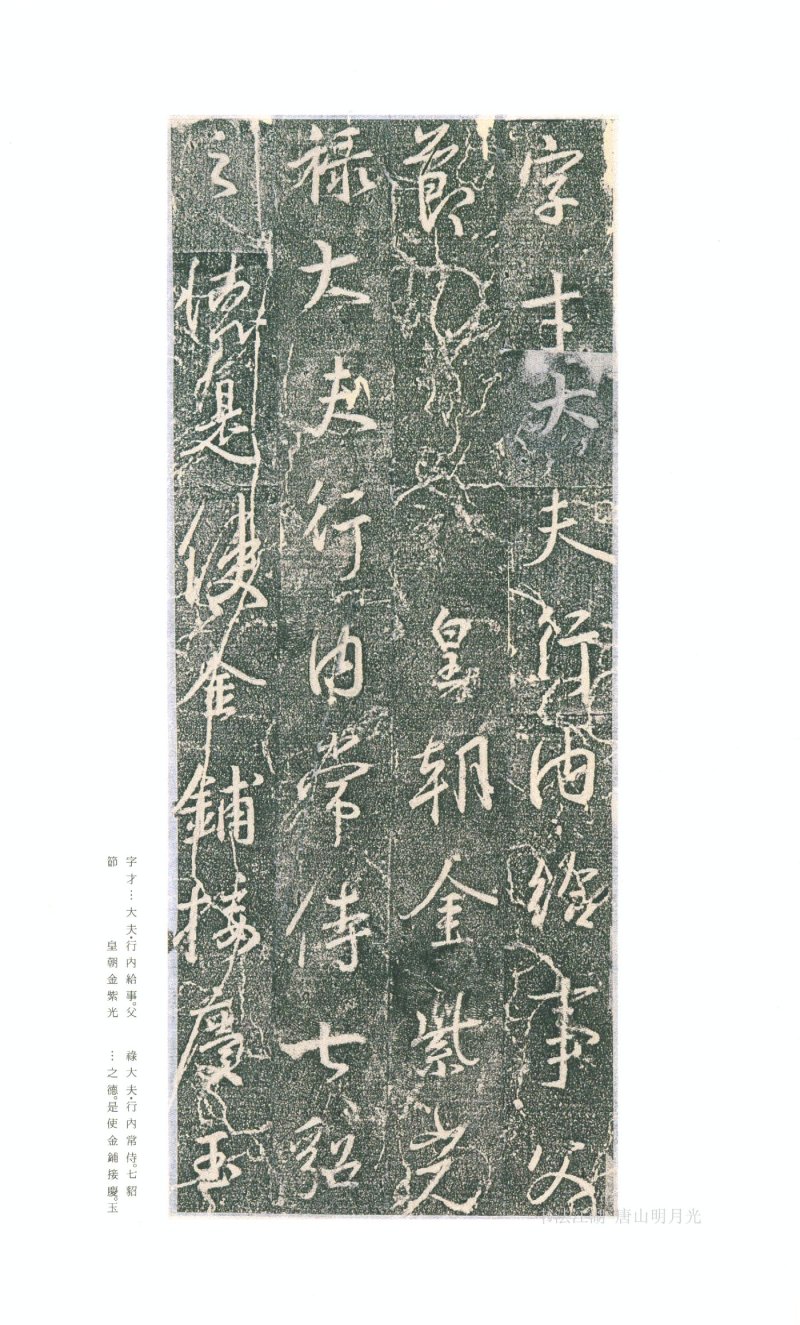 字才大夫行內給事父
節皇朝金紫光
祿大夫行內常侍七貂
之德是使金鋪接慶玉
字才…大夫・行內給事。父
節　皇朝金紫光
祿大夫・行內常侍。七貂
…之德。是使金鋪接慶。玉
唐山明月光